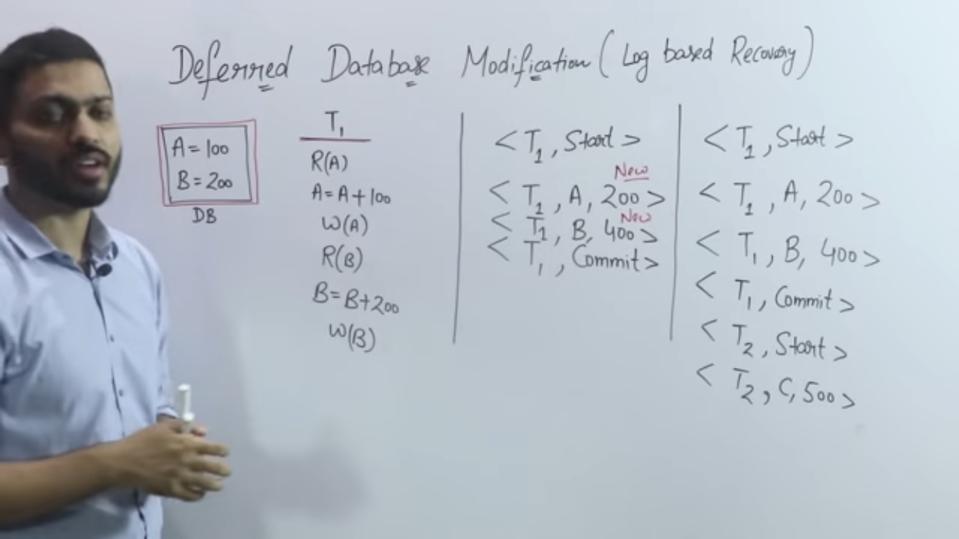 Deferred Database Modification (Log based Recovery)
A = 100
B = 200
DB
T1
R(A)
A = A + 100
W(A)
R(B)
B = B + 200
W(B)
< T1, Start >
New
< T1, A, 200 >
New
< T1, B, 400 >
< T1, Commit >
< T1, Start >
< T1, A, 200 >
< T1, B, 400 >
< T1, Commit >
< T2, Start >
< T2, C, 500 >